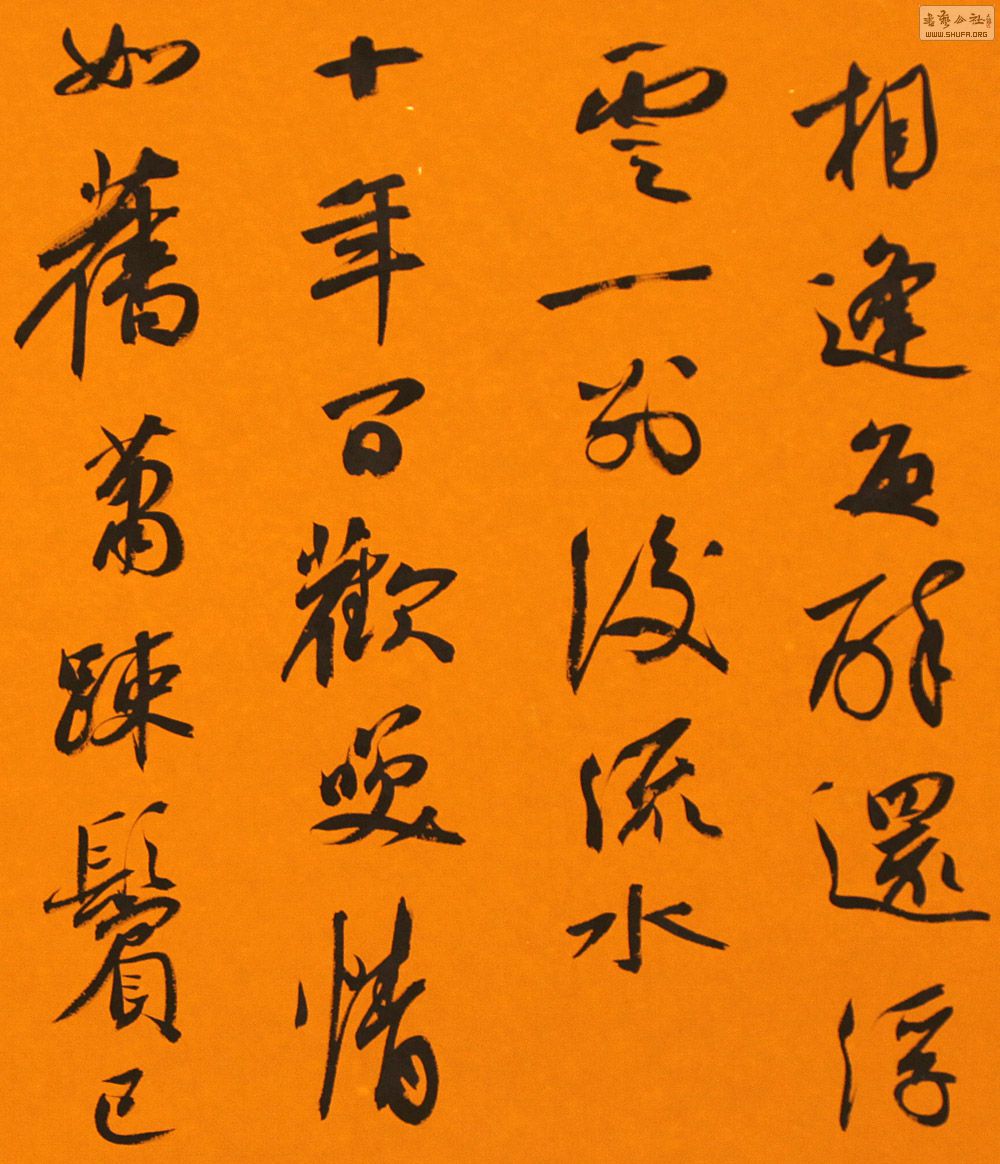 相逢每醉還浮
雲一別後流水
十年間歡咲情
如舊蕭踈鬢已
書藝公社
WWW.SHUFA.ORG